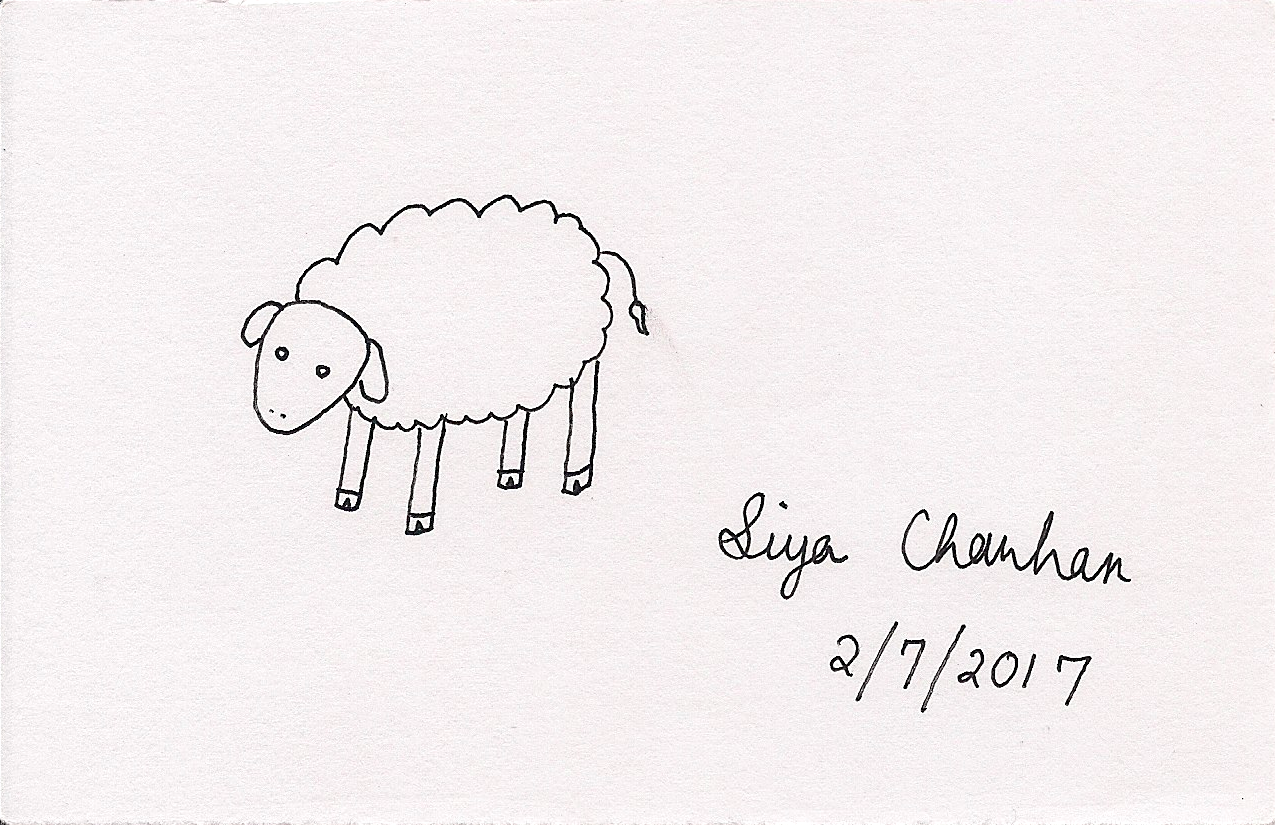 Siya Chauhan
2/7/2017